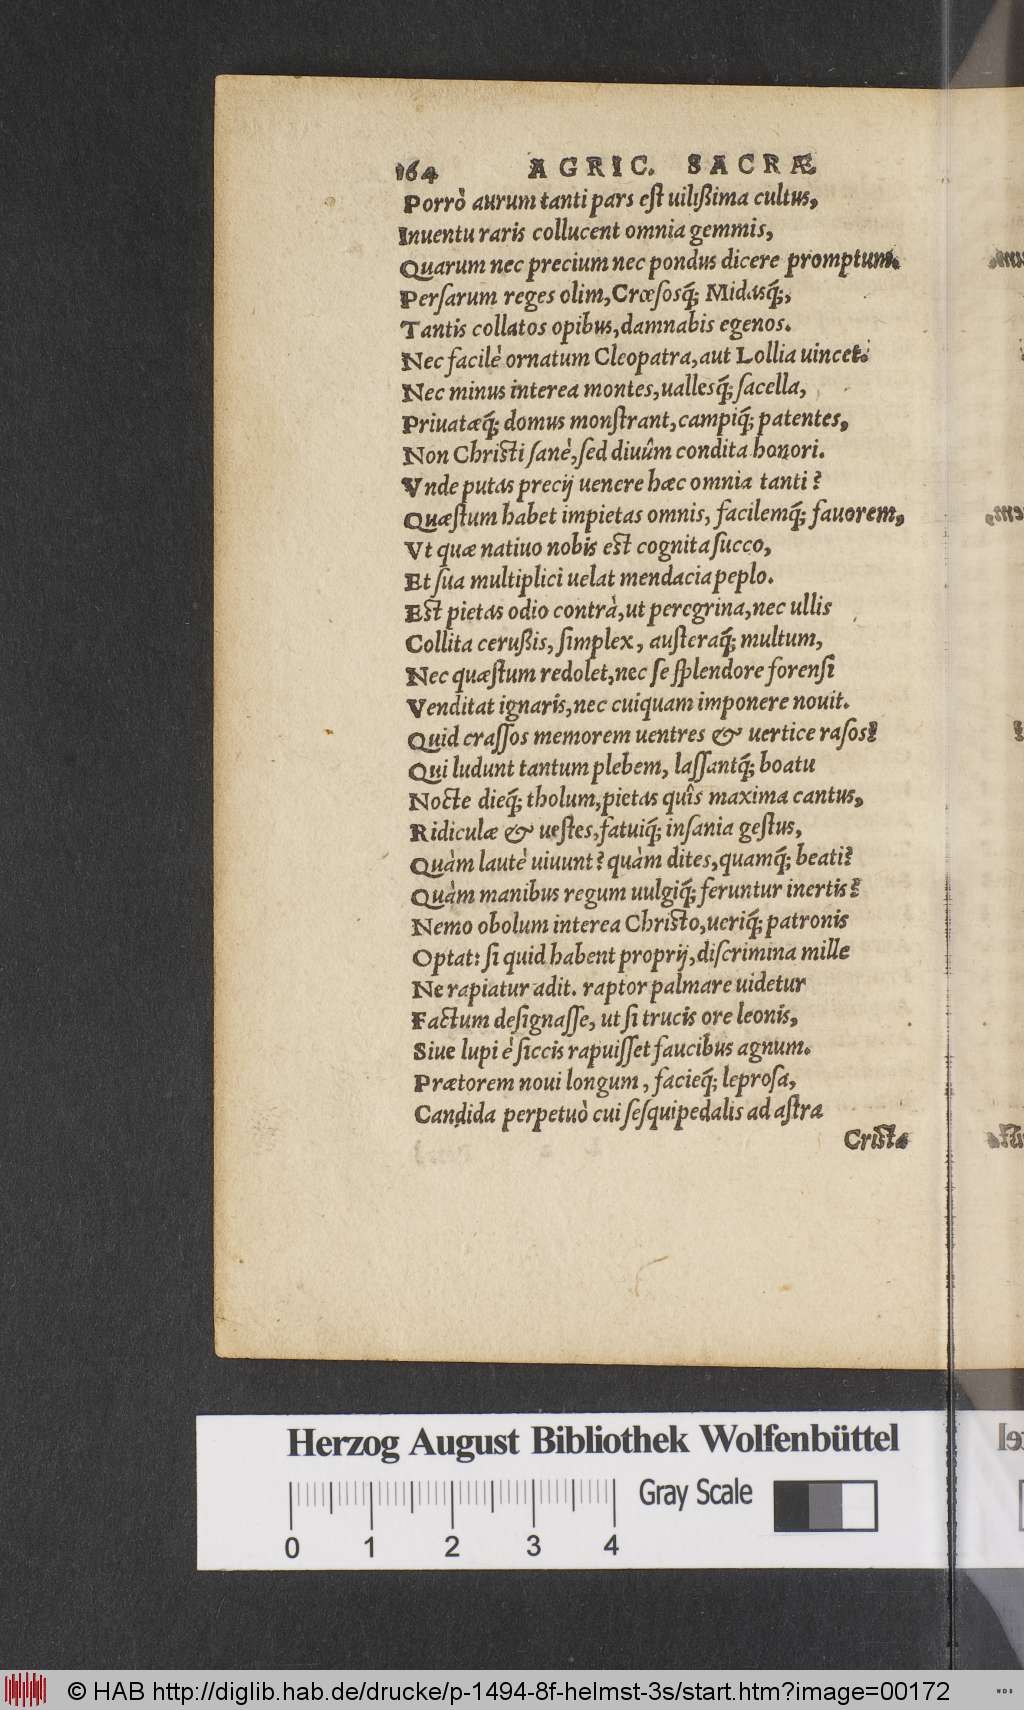 164 AGRIC. SACRÆ
Porrò aurum tanti pars est uilißima cultus,
Inuentu raris collucent omnia gemmis,
Quarum nec precium nec pondus dicere promptum.
Persarum reges olim, Crœsosq́; Midasq́;,
Tantis collatos opibus, damnabis egenos.
Nec facilè ornatum Cleopatra, aut Lollia uincet.
Nec minus interea montes, uallesq́; sacella,
Priuatæq́; domus monstrant, campiq́; patentes,
Non Christi sanè, sed diuûm condita honori.
Vnde putas precij uenere hæc omnia tanti?
Quæstum habet impietas omnis, facilemq́; fauorem,
Vt quæ natiuo nobis est cognita succo,
Et sua multiplici uelat mendacia peplo.
Est pietas odio contrà, ut peregrina, nec ullis
Collita cerußis, simplex, austeraq́; multum,
Nec quæstum redolet, nec se splendore forensi
Venditat ignaris, nec cuiquam imponere nouit.
Quid crassos memorem uentres & uertice rasos?
Qui ludunt tantum plebem, lassantq́; boatu
Nocte dieq́; tholum, pietas quîs maxima cantus,
Ridiculæ & uestes, fatuiq́; insania gestus,
Quàm lautè uiuunt? quàm dites, quamq́; beati?
Quàm manibus regum uulgiq́; feruntur inertis?
Nemo obolum interea Christo, ueriq́; patronis
Optat: si quid habent proprij, discrimina mille
Ne rapiatur adit. raptor palmare uidetur
Factum designasse, ut si trucis ore leonis,
Siue lupi è siccis rapuisset faucibus agnum.
Prætorem noui longum, facieq́; leprosa,
Candida perpetuò cui sesquipedalis ad astra
Cristæ
Herzog August Bibliothek Wolfenbüttel
0 1 2 3 4 Gray Scale
© HAB http://diglib.hab.de/drucke/p-1494-8f-helmst-3s/start.htm?image=00172